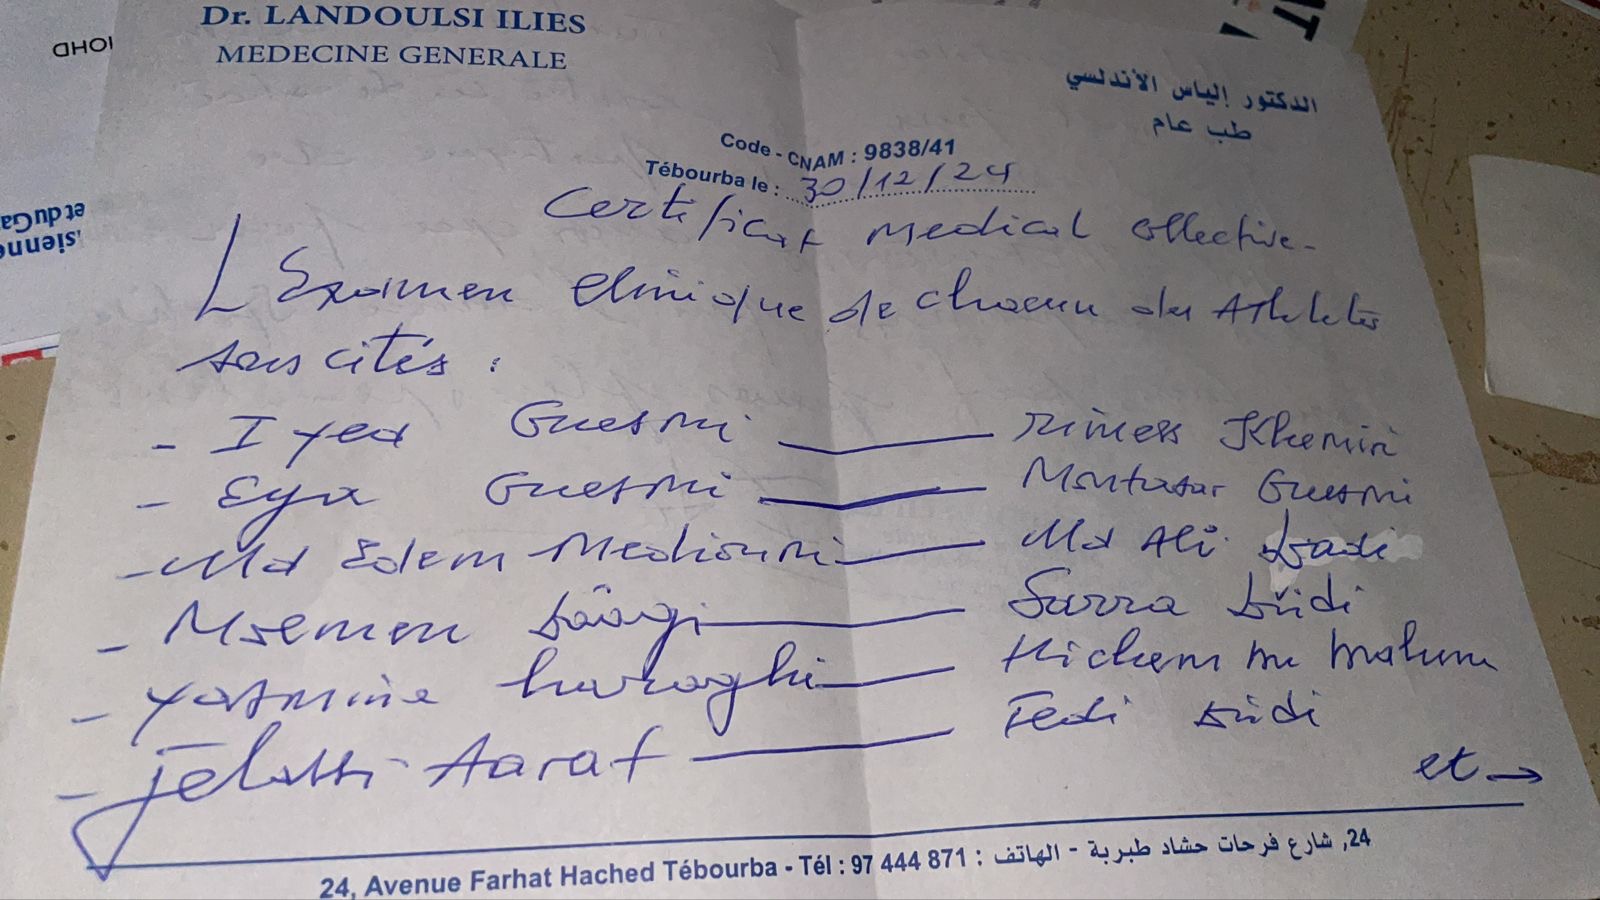 Dr. LANDOULSI ILIES
MEDECINE GENERALE
الدكتور إلياس الأندلسي
طب عام
Code - CNAM : 9838/41
Tébourba le : 30/12/24
Certificat Medical Collective
L'Examen Clinique de chacun des Athlètes
sous cités :
- Iyed Guesmi — Rimess Khemiri
- Eya Guesmi — Montasar Guesmi
- Md Edem Mediouni — Md Ali
- Moemen — Sarra
- Yasmine — Hichem
- Jelassi Aaraf — Fedi
et →
24, Avenue Farhat Hached Tébourba - Tél : 97 444 871 : الهاتف - 24, شارع فرحات حشاد طبربة